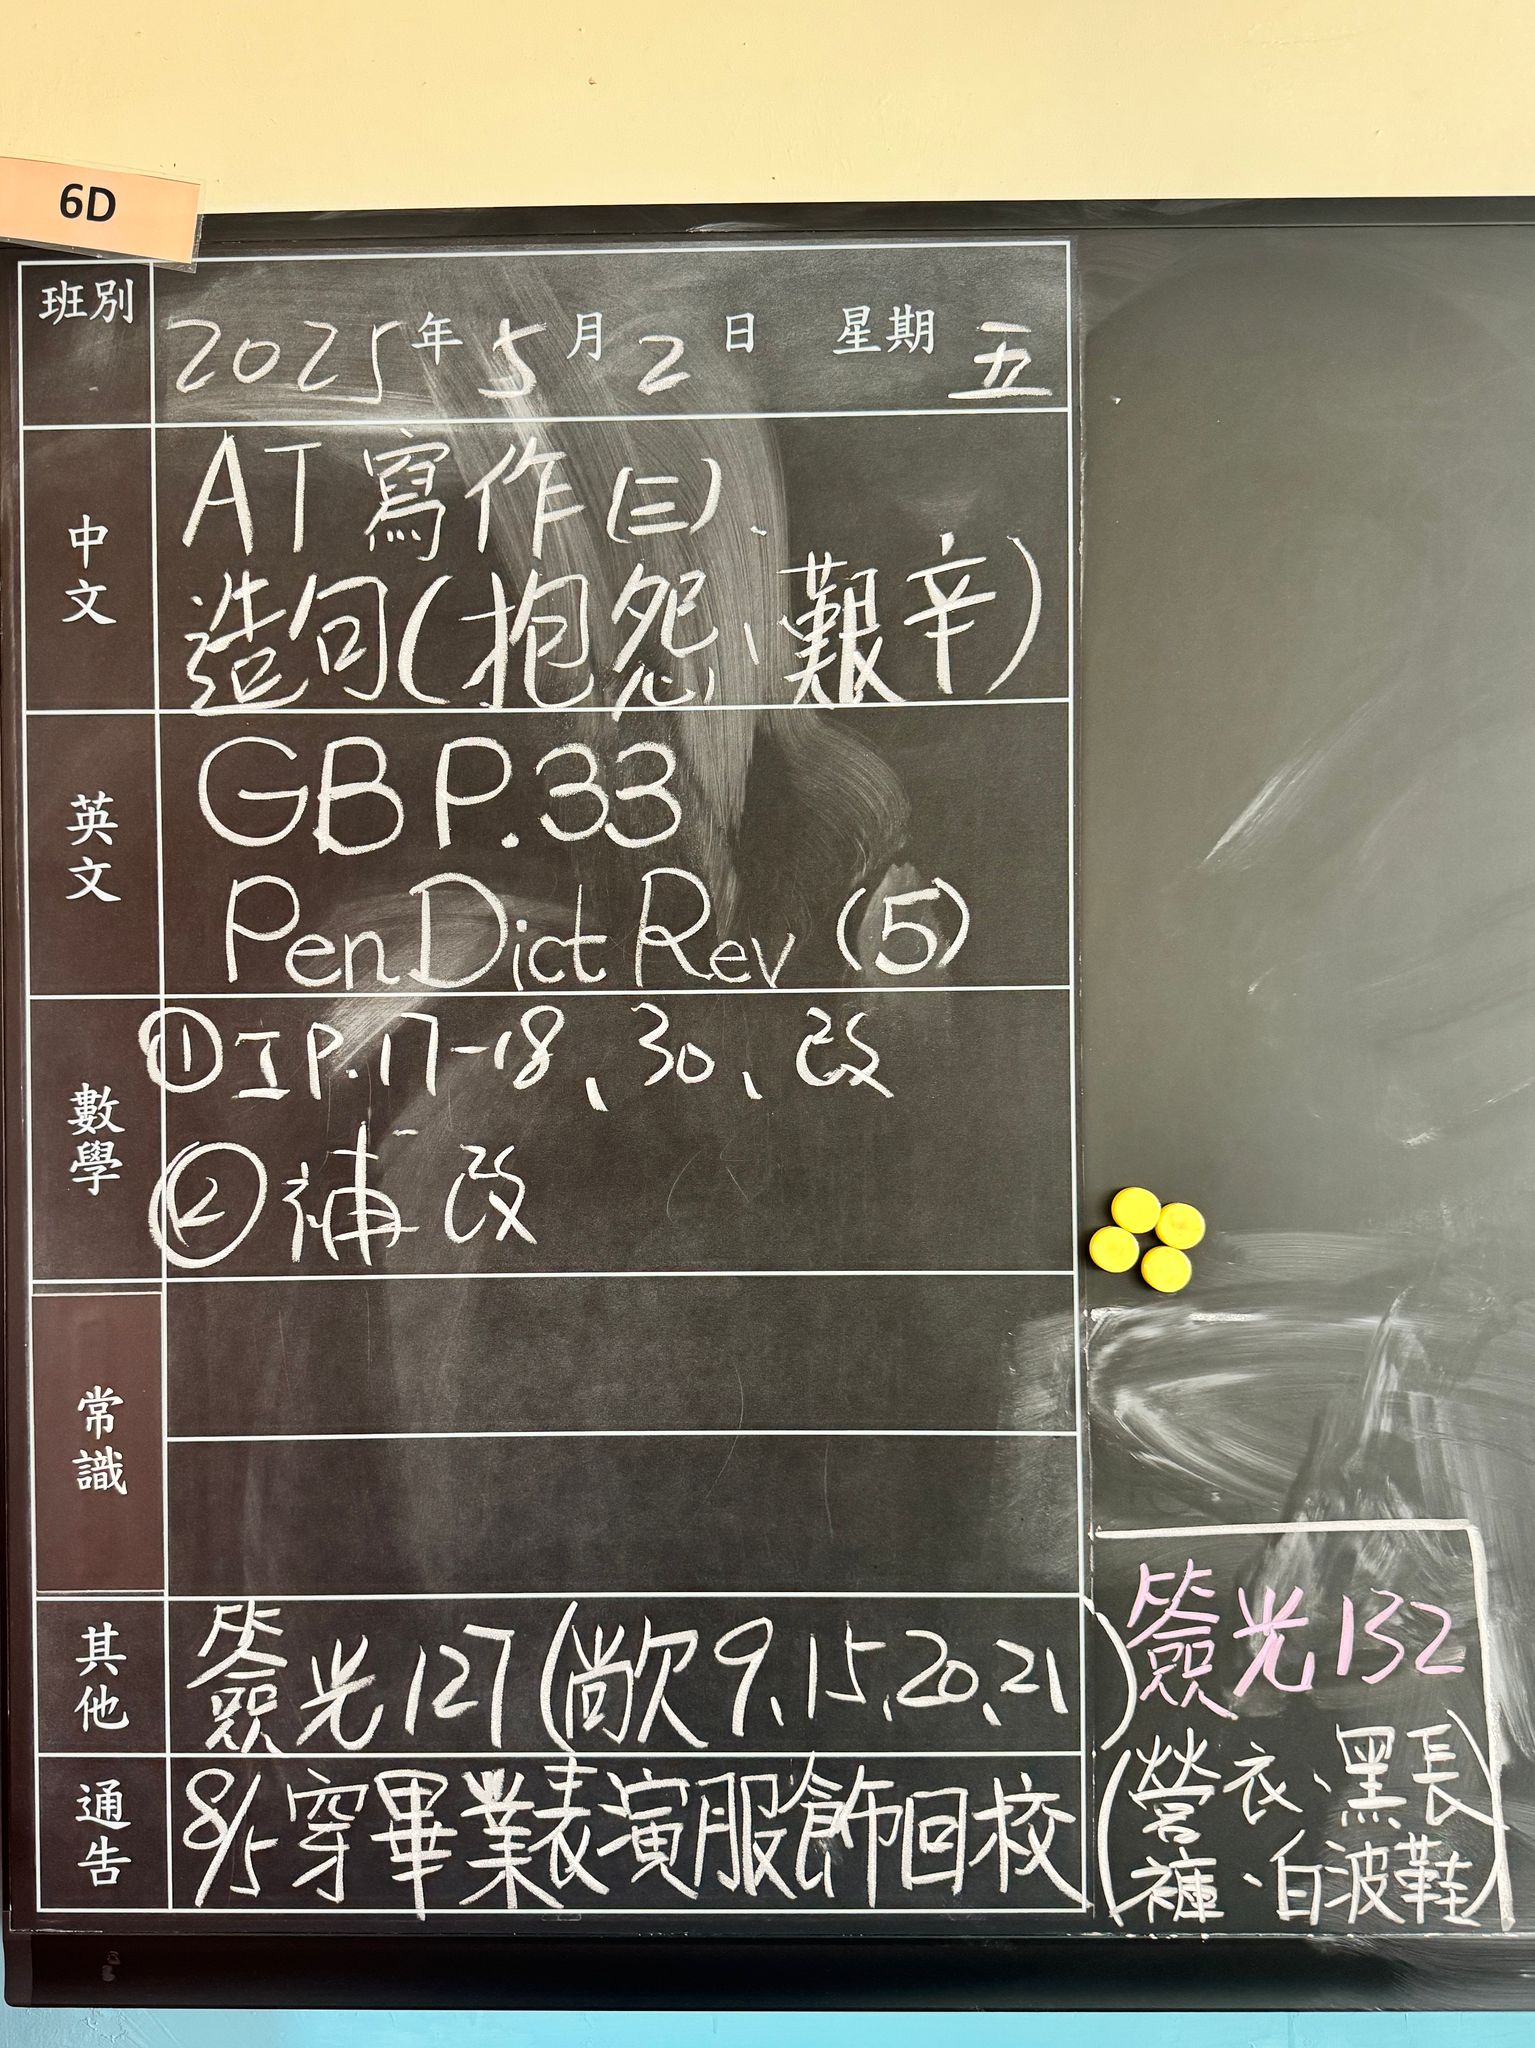 6D
班別
2025年5月2日 星期五
中文
AT寫作(三)、
造句(抱怨、艱辛)
英文
GB P.33
Pen Dict Rev (5)
數學
①工P.17-18、30、改
②補改
常識
其他
簽光127(尚欠9、15、20、21)
通告
8/5穿畢業表演服飾回校
簽光132
(營衣、黑長
褲、白波鞋)